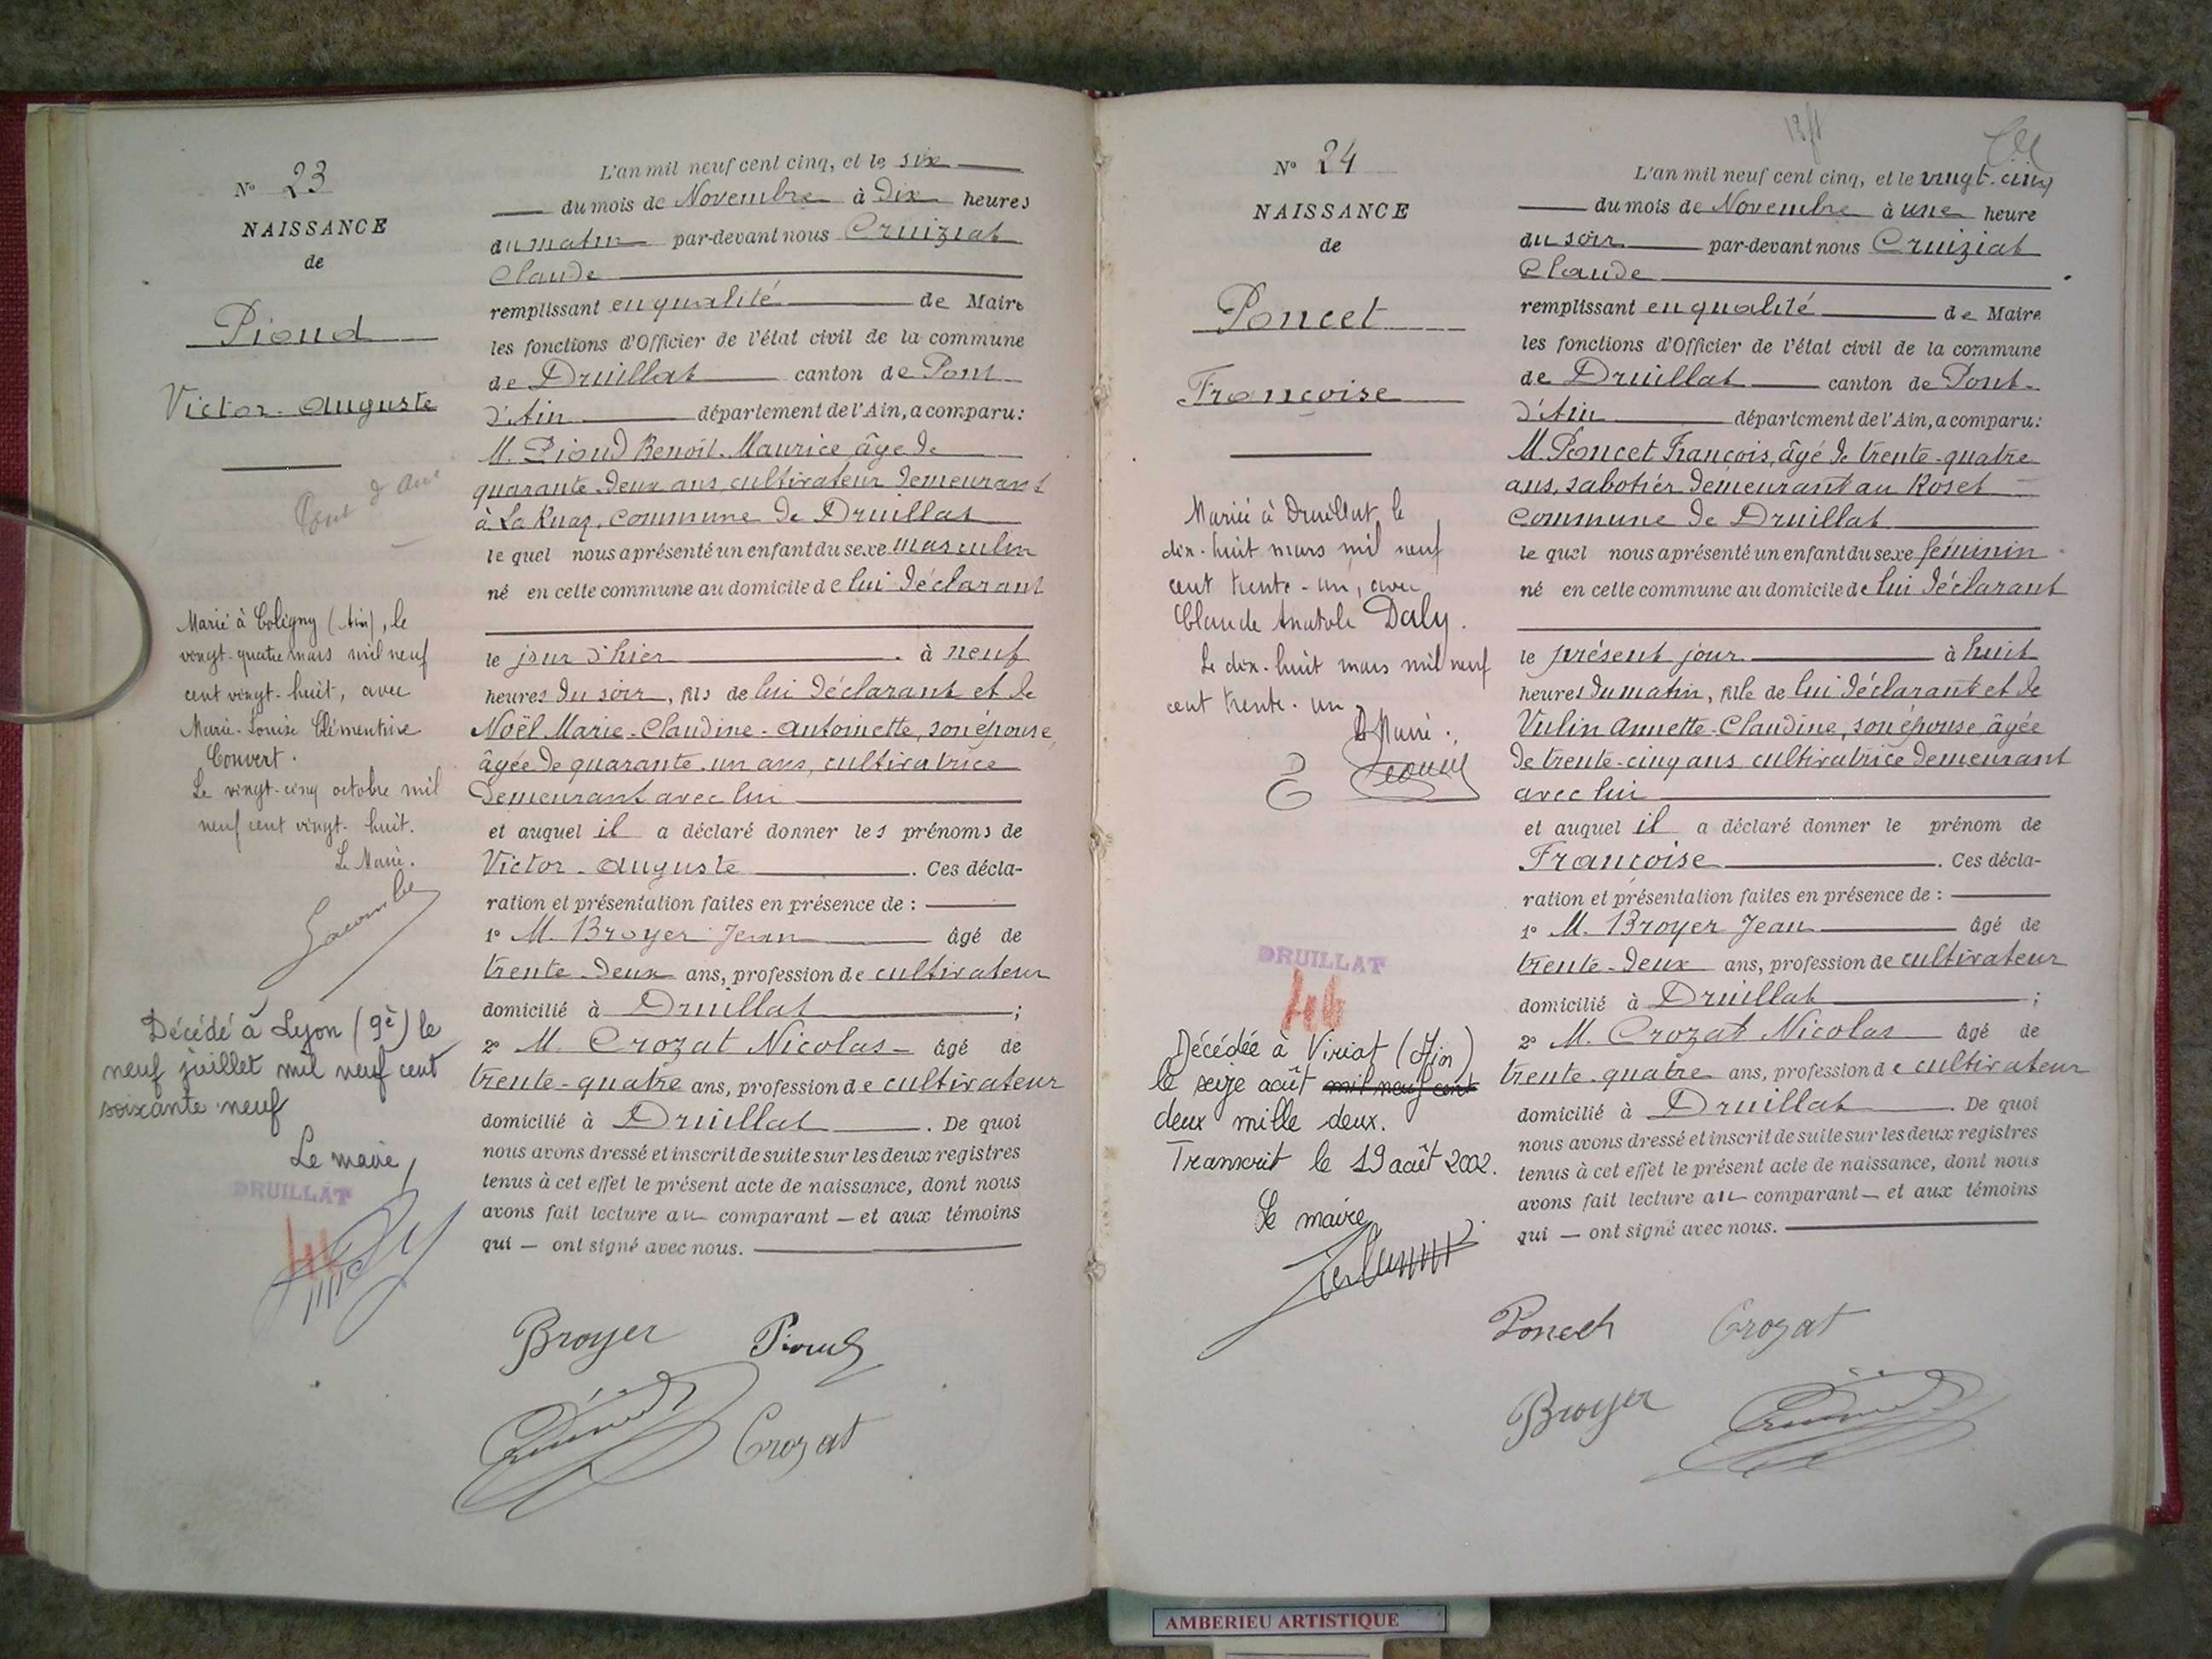 N° 23
NAISSANCE
de
Pioud
Victor-Auguste
Marié à Coligny (Ain), le
vingt-quatre mars mil neuf
cent vingt-huit, avec
Marie-Louise Clémentine
Convert.
Le vingt-cinq octobre mil
neuf cent vingt-huit.
Le Maire.
Décédé à Lyon (9è) le
neuf juillet mil neuf cent
soixante neuf
Le maire,
DRUILLAT
L'an mil neuf cent cinq, et le six
du mois de Novembre à Dix heures
du matin par-devant nous Cruiziat
Claude
remplissant en qualité de Maire
les fonctions d'Officier de l'état civil de la commune
de Druillat canton de Pont
d'Ain département de l'Ain, a comparu:
M. Pioud Benoît-Maurice, âgé de
quarante-deux ans, cultivateur demeurant
à La Ruaz, commune de Druillat
le quel nous a présenté un enfant du sexe masculin
né en cette commune au domicile de lui déclarant
le jour d'hier à neuf
heures du soir, fils de lui déclarant et de
Noël Marie-Claudine-Antoinette, son épouse,
âgée de quarante-un ans, cultivatrice
demeurant avec lui
et auquel il a déclaré donner les prénoms de
Victor-Auguste. Ces décla-
ration et présentation faites en présence de :
1° M. Broyer Jean âgé de
trente-deux ans, profession de cultivateur
domicilié à Druillat ;
2° M. Crozat Nicolas âgé de
trente-quatre ans, profession de cultivateur
domicilié à Druillat. De quoi
nous avons dressé et inscrit de suite sur les deux registres
tenus à cet effet le présent acte de naissance, dont nous
avons fait lecture au comparant et aux témoins
qui ont signé avec nous.
Broyer Pioud
Crozat
N° 24
NAISSANCE
de
Poncet
Françoise
Mariée à Druillat le
dix-huit mars mil neuf
cent trente-un, avec
Claude Anatole Daly.
Le dix-huit mars mil neuf
cent trente-un
Le Maire.
DRUILLAT
44
Décédée à Viriat (Ain)
le seize août mil neuf cent
deux mille deux.
Transcrit le 19 août 2002.
Le maire
L'an mil neuf cent cinq, et le vingt-cinq
du mois de Novembre à une heure
du soir par-devant nous Cruiziat
Claude
remplissant en qualité de Maire
les fonctions d'Officier de l'état civil de la commune
de Druillat canton de Pont-
d'Ain département de l'Ain, a comparu:
M. Poncet François, âgé de trente-quatre
ans, sabotier demeurant au Roset
commune de Druillat
le quel nous a présenté un enfant du sexe féminin
né en cette commune au domicile de lui déclarant
le présent jour à huit
heures du matin, fille de lui déclarant et de
Vulin Annette-Claudine, son épouse, âgée
de trente-cinq ans, cultivatrice demeurant
avec lui
et auquel il a déclaré donner le prénom de
Françoise. Ces décla-
ration et présentation faites en présence de :
1° M. Broyer Jean âgé de
trente-deux ans, profession de cultivateur
domicilié à Druillat ;
2° M. Crozat Nicolas âgé de
trente-quatre ans, profession de cultivateur
domicilié à Druillat. De quoi
nous avons dressé et inscrit de suite sur les deux registres
tenus à cet effet le présent acte de naissance, dont nous
avons fait lecture au comparant et aux témoins
qui ont signé avec nous.
Poncet Crozat
Broyer
AMBERIEU ARTISTIQUE